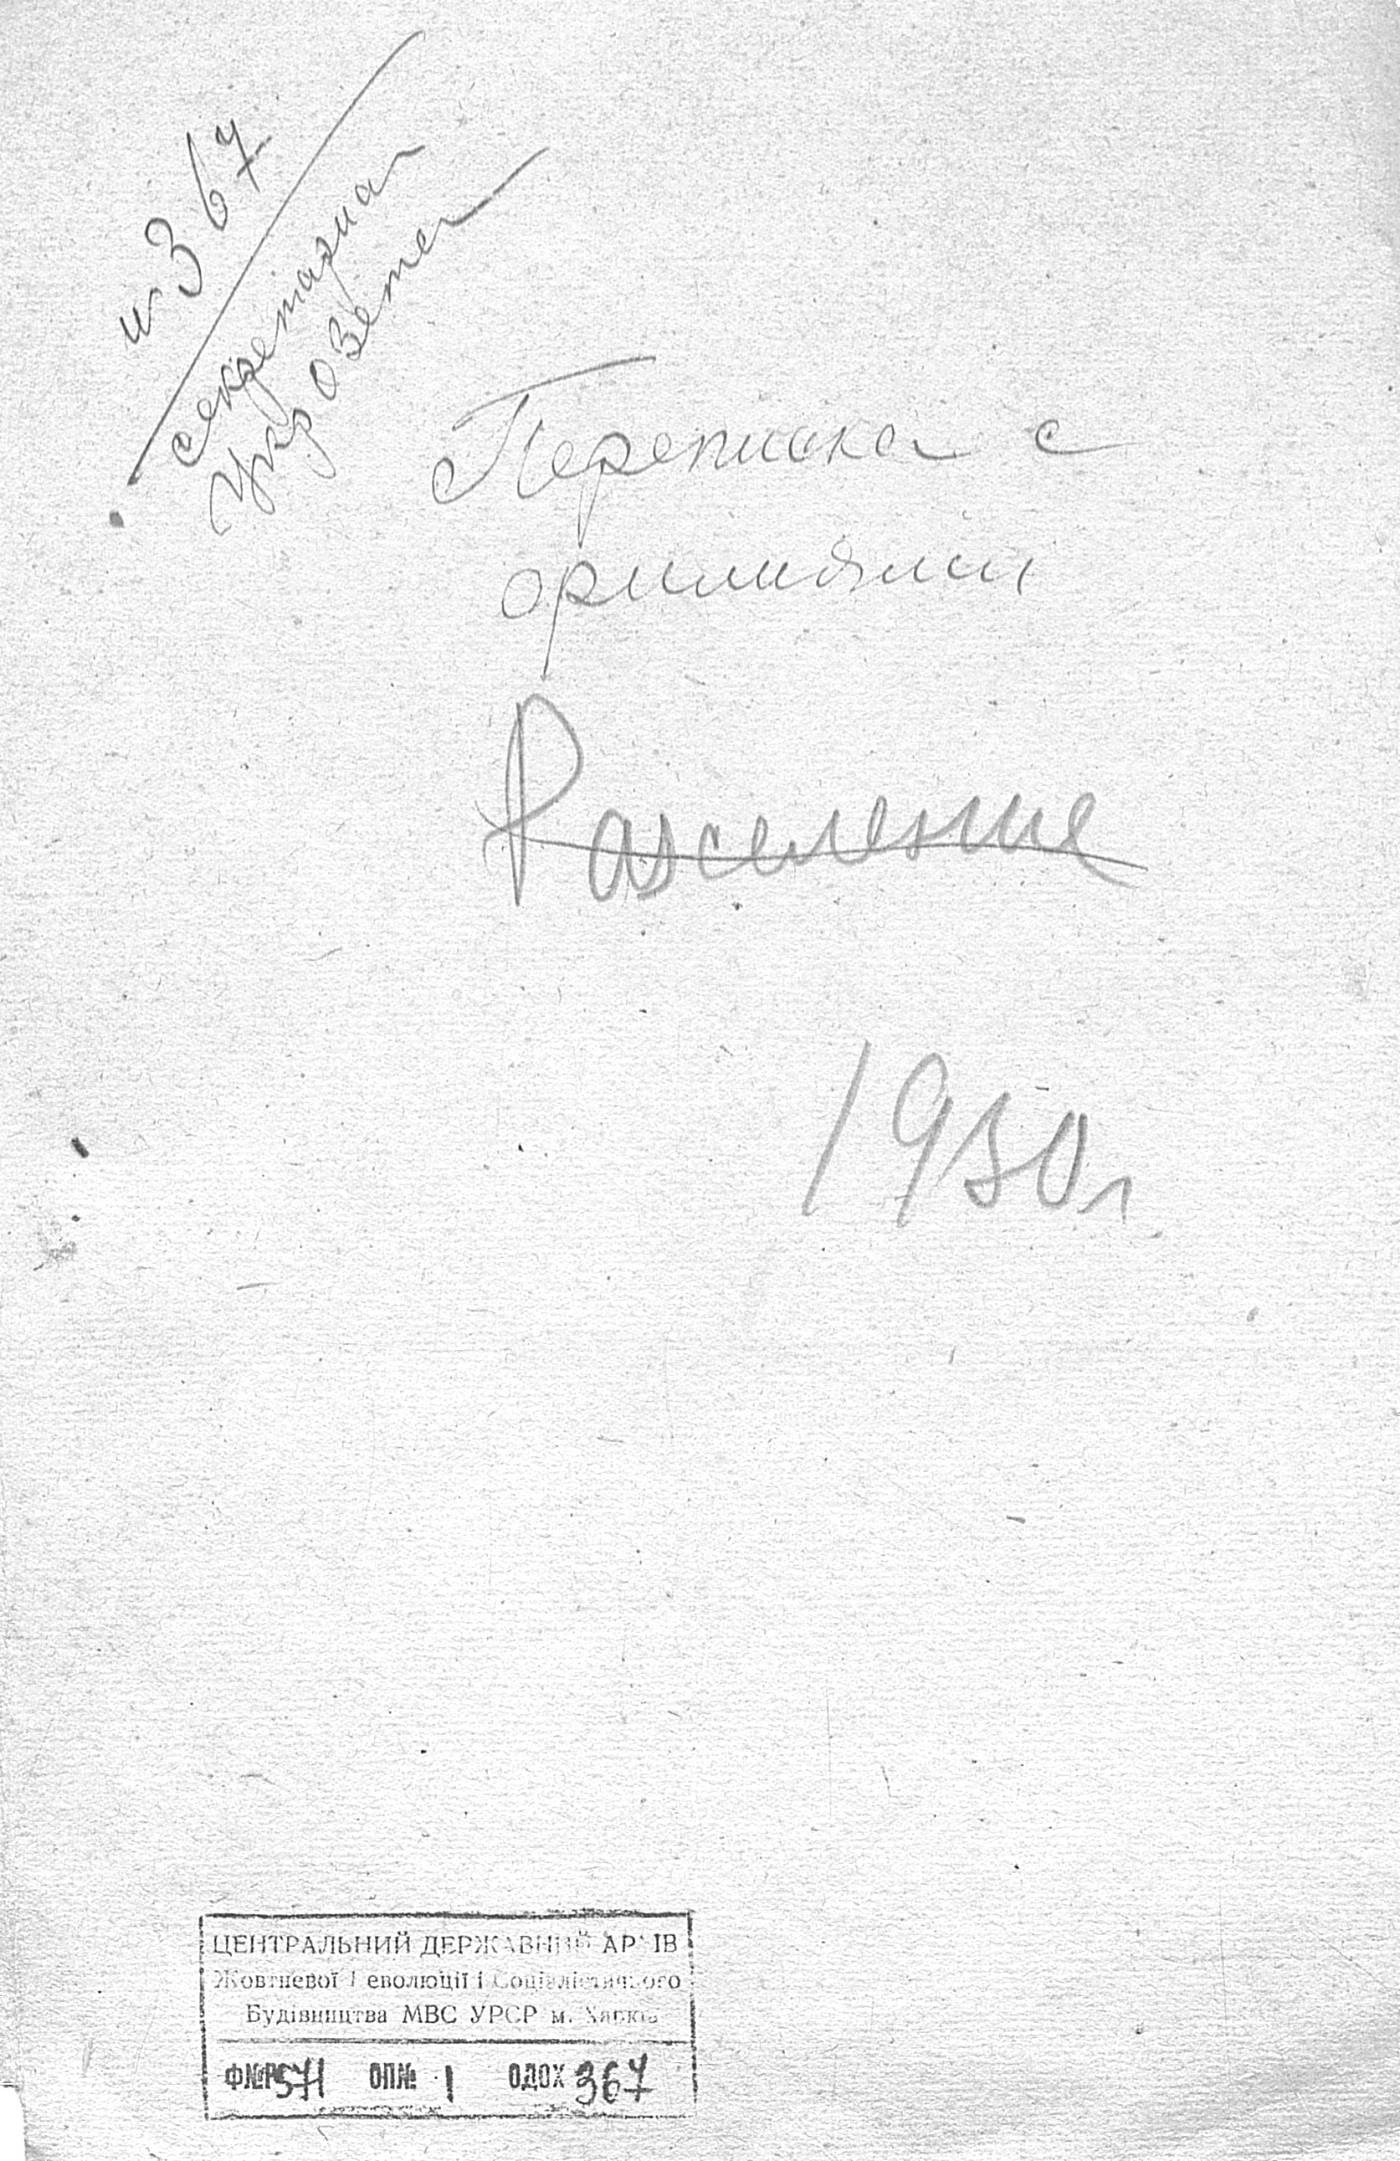 и 367
секретариат
УкрОЗЕТа
Переписка с
Расселение
1930 г.
ЦЕНТРАЛЬНИЙ ДЕРЖАВНИЙ АРХІВ
Жовтневої Революції і Соціалістичного
Будівництва МВС УРСР м. Харків
Ф№Р571 ОП№ 1 ОДОХ 367